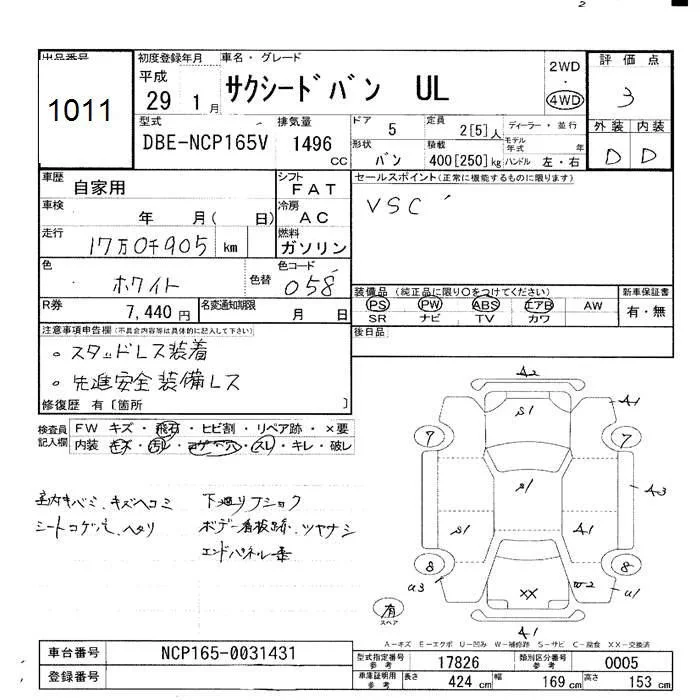 出品番号
1011
初度登録年月
平成
29 1月
車名・グレード
サクシードバン UL
2WD
・
4WD
評価点
3
外装 内装
D D
型式
DBE-NCP165V
排気量
1496
CC
ドア
5
定員
2[5]人
ディーラー・並行
形状
バン
積載
400[250]kg
モデル年式 年
ハンドル 左・右
車歴
自家用
シフト
FAT
セールスポイント(正常に機能するものに限ります)
VSC
車検
年 月( 日)
冷房
AC
走行
17万0千905 km
燃料
ガソリン
色
ホワイト
色替
色コード
058
装備品(純正品に限り○をつけてください)
PS PW ABS エアB AW
SR ナビ TV カワ
新車保証書
有・無
R券
7,440円
名変通知期限
月 日
後日品
注意事項申告欄(不具合内容等は具体的に記入して下さい)
。スタッドレス装着
。先進安全装備レス
修復歴 有〔箇所 〕
検査員
記入欄
FW キズ・飛石・ヒビ割・リペア跡・×要
内装 キズ・汚レ・コゲ・穴・スレ・キレ・破レ
室内キバミ、キズヘコミ
シートコゲ穴、ヘタリ
下廻リフショク
ボデー看板跡、ツヤナシ
エンドパネル一乗
A2
S1
A1
7
7
S1
A3
S1
A1
8
8
a3
XX
W2
u1
A1
有
スペア
A-キズ E-エクボ U-凹み W-補修跡 S-サビ C-腐食 XX-交換済
車台番号
NCP165-0031431
登録番号
型式指定番号
参考
17826
類別区分番号
参考
0005
車庫証明用
参考
長さ
424 cm
幅
169 cm
高さ
153 cm